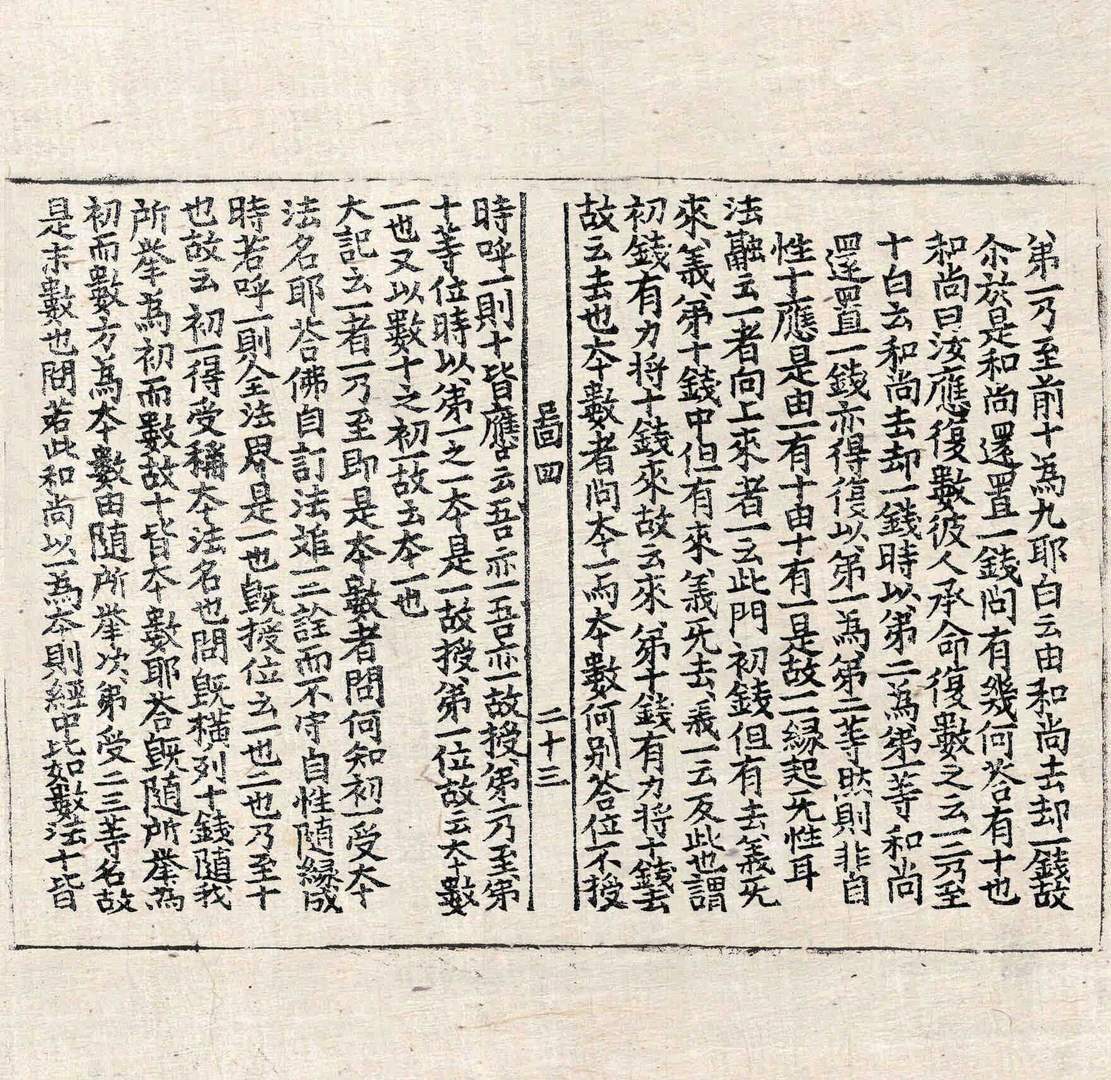 第一乃至前十為九耶白云由和尚去却一錢故
尒於是和尚還置一錢问有幾何荅有十也
和尚曰汝應復數彼人承命復數之云一二乃至
十白云和尚去却一錢時以第二為第一等和尚
還置一錢亦得復以第一為第二等然則非自
性十應是由一有十由十有一是故二緣起无性耳
法融云一者向上來者一云此門初錢但有去義无
來義第十錢中但有來義无去義一云反此也謂
初錢有力將十錢來故云來第十錢有力將十錢去
故云去也本數者问本一而本數何别荅位不授
啚四 二十三
時呼一則十皆應云吾亦一吾亦一故授第一乃至第
十等位時以第一之一本是一故授第一位故云本數
一也又以數十之初一故云本一也
大記云一者一乃至即是本數者問何知初一受本
法名耶荅佛自訂法遮一二詮而不守自性隨緣成
時若呼一則全法界是一也旣授位云一也二也乃至十
也故云初一得受稱本法名也問旣橫列十錢隨我
所擧為初而數故十皆本數耶荅旣隨所擧為
初而數方為本數由隨所擧次第受二三等名故
是末數也問若此和尚以一為本則經中比如數法十皆